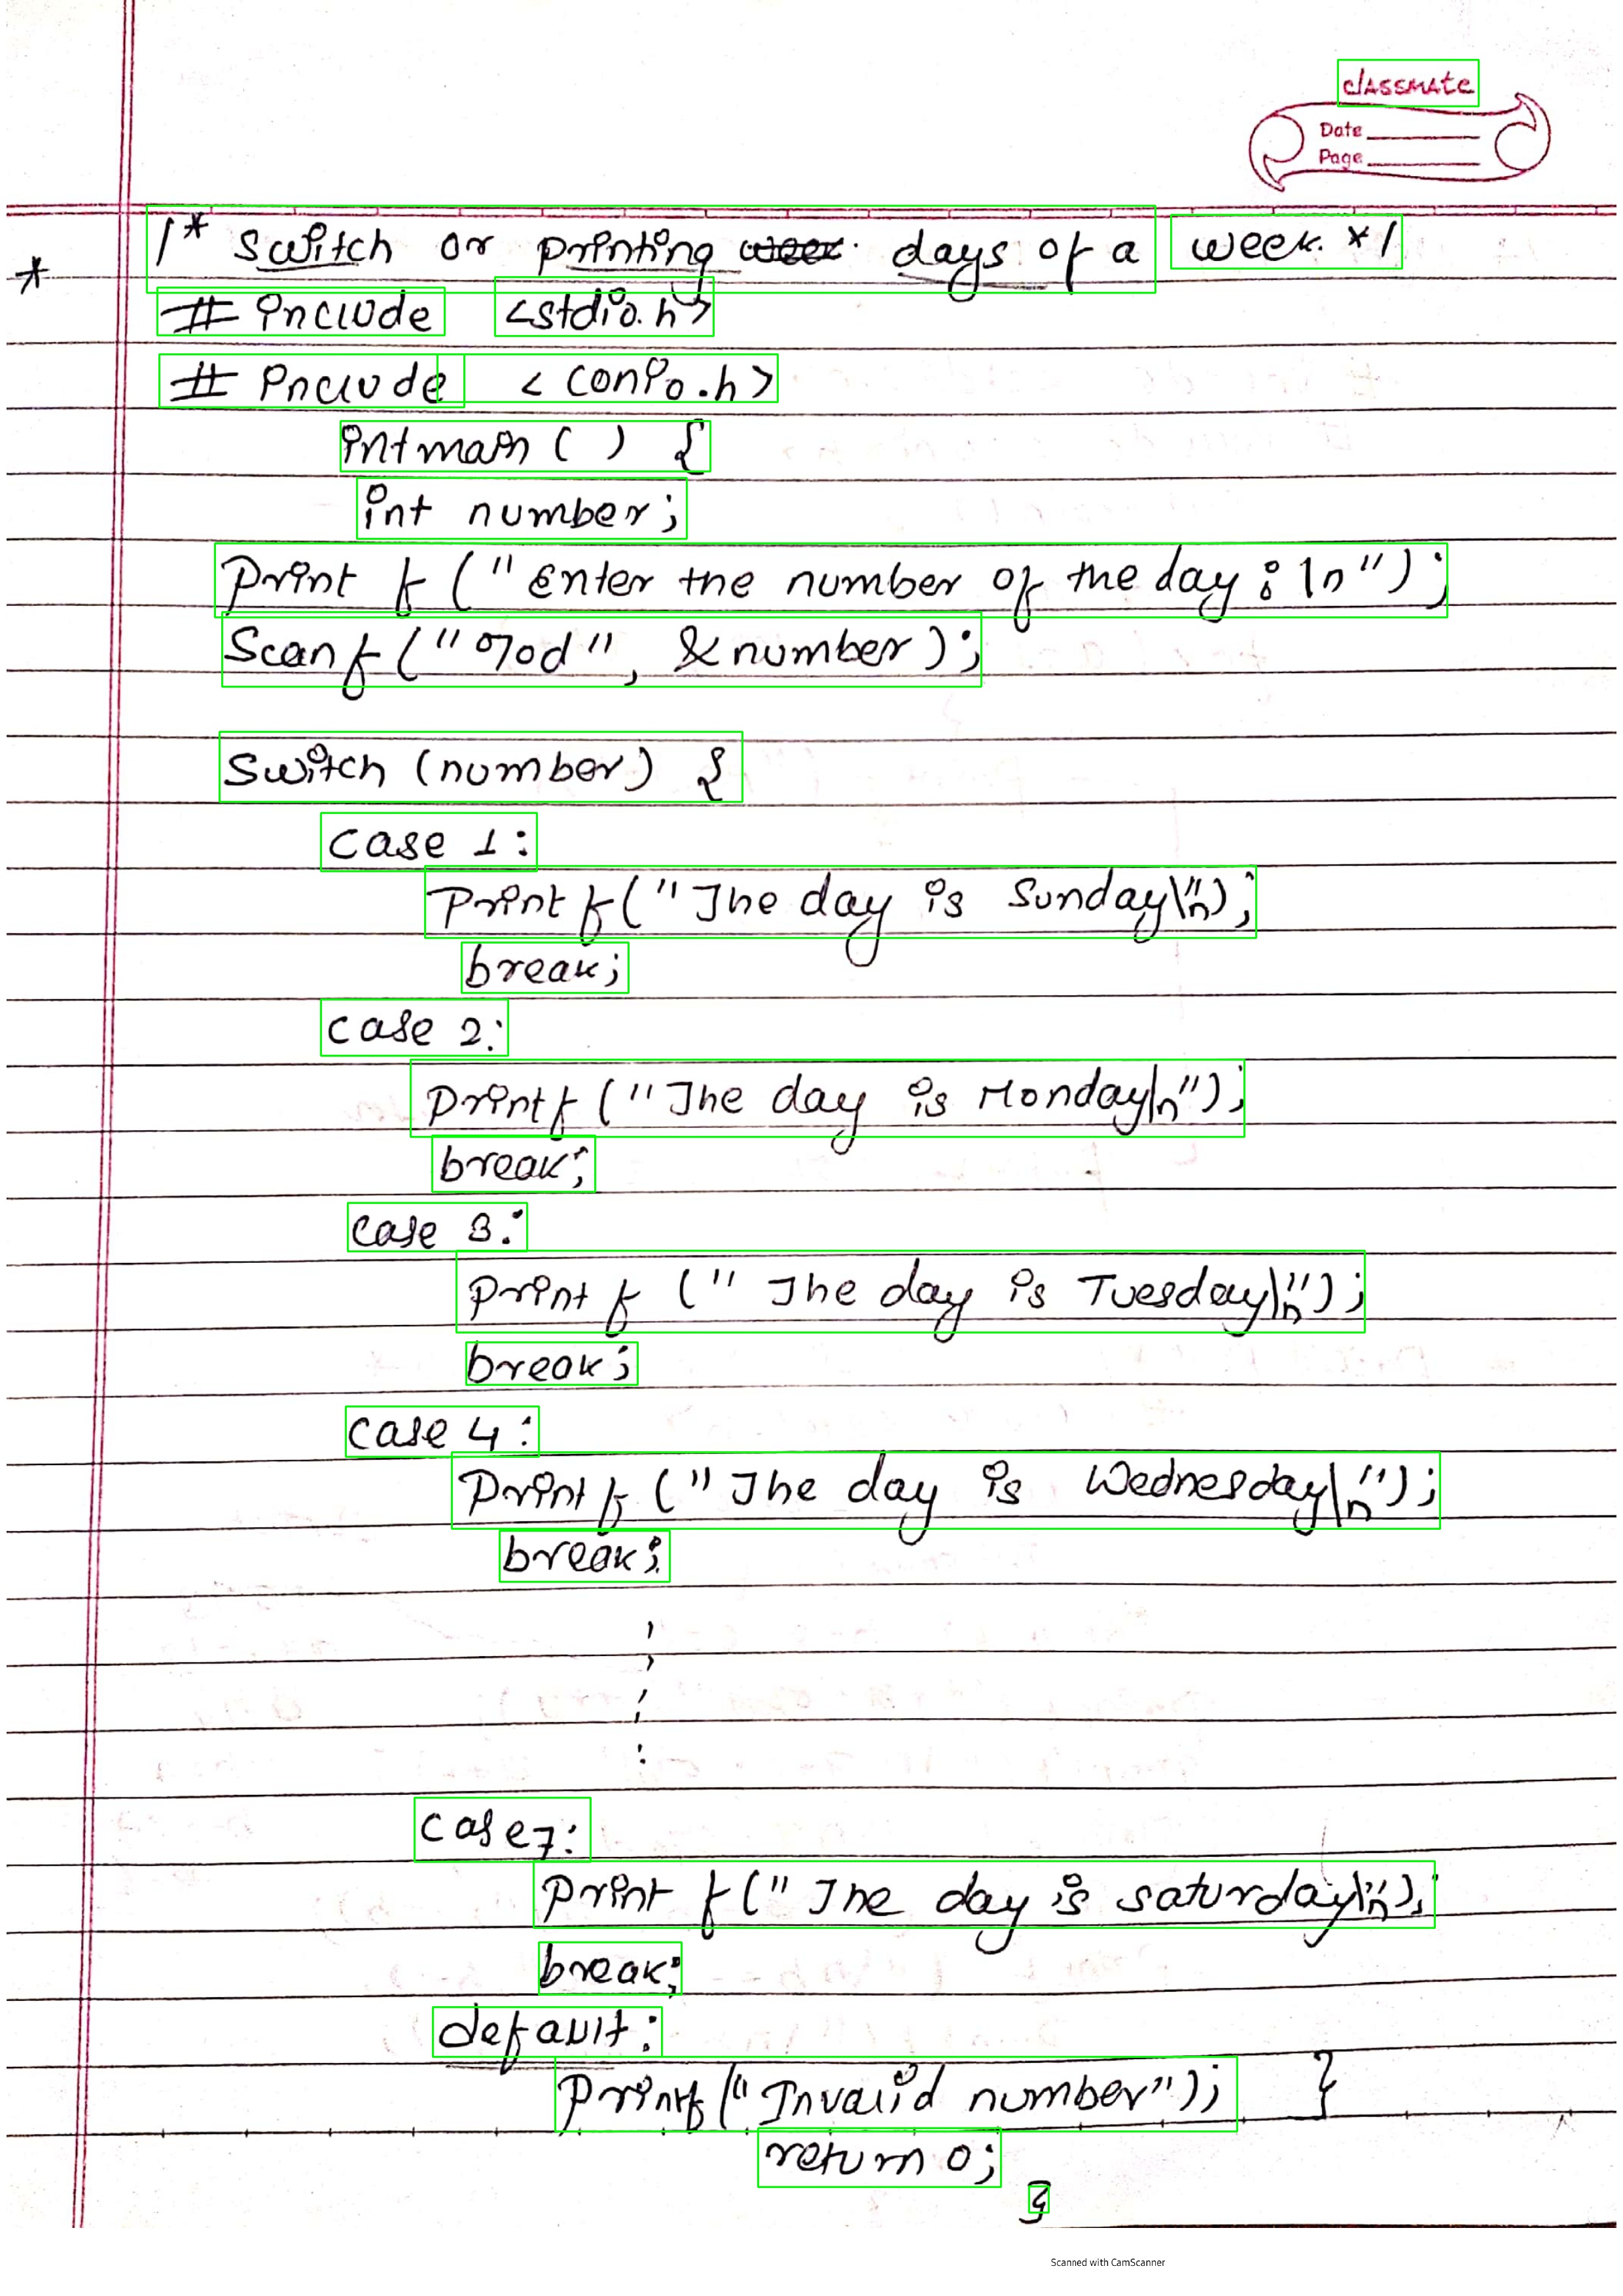 classmate
Date
Page
/* Switch or printing days of a week. */
*
# include <stdio.h>
# include <conio.h>
int main ( ) {
int number;
Print f (" Enter the number of the day : \n");
Scanf ("%d", &number);
Switch (number) {
Case 1:
Print f("The day is Sunday\n");
break;
Case 2:
Printf ("The day is Monday\n");
break;
Case 3:
Print f (" The day is Tuesday\n");
break;
Case 4:
Print f ("The day is Wednesday\n");
break;
Case 7:
Print f(" The day is saturday\n");
break;
default:
Printf ("Invalid number"); }
return 0;
}
Scanned with CamScanner